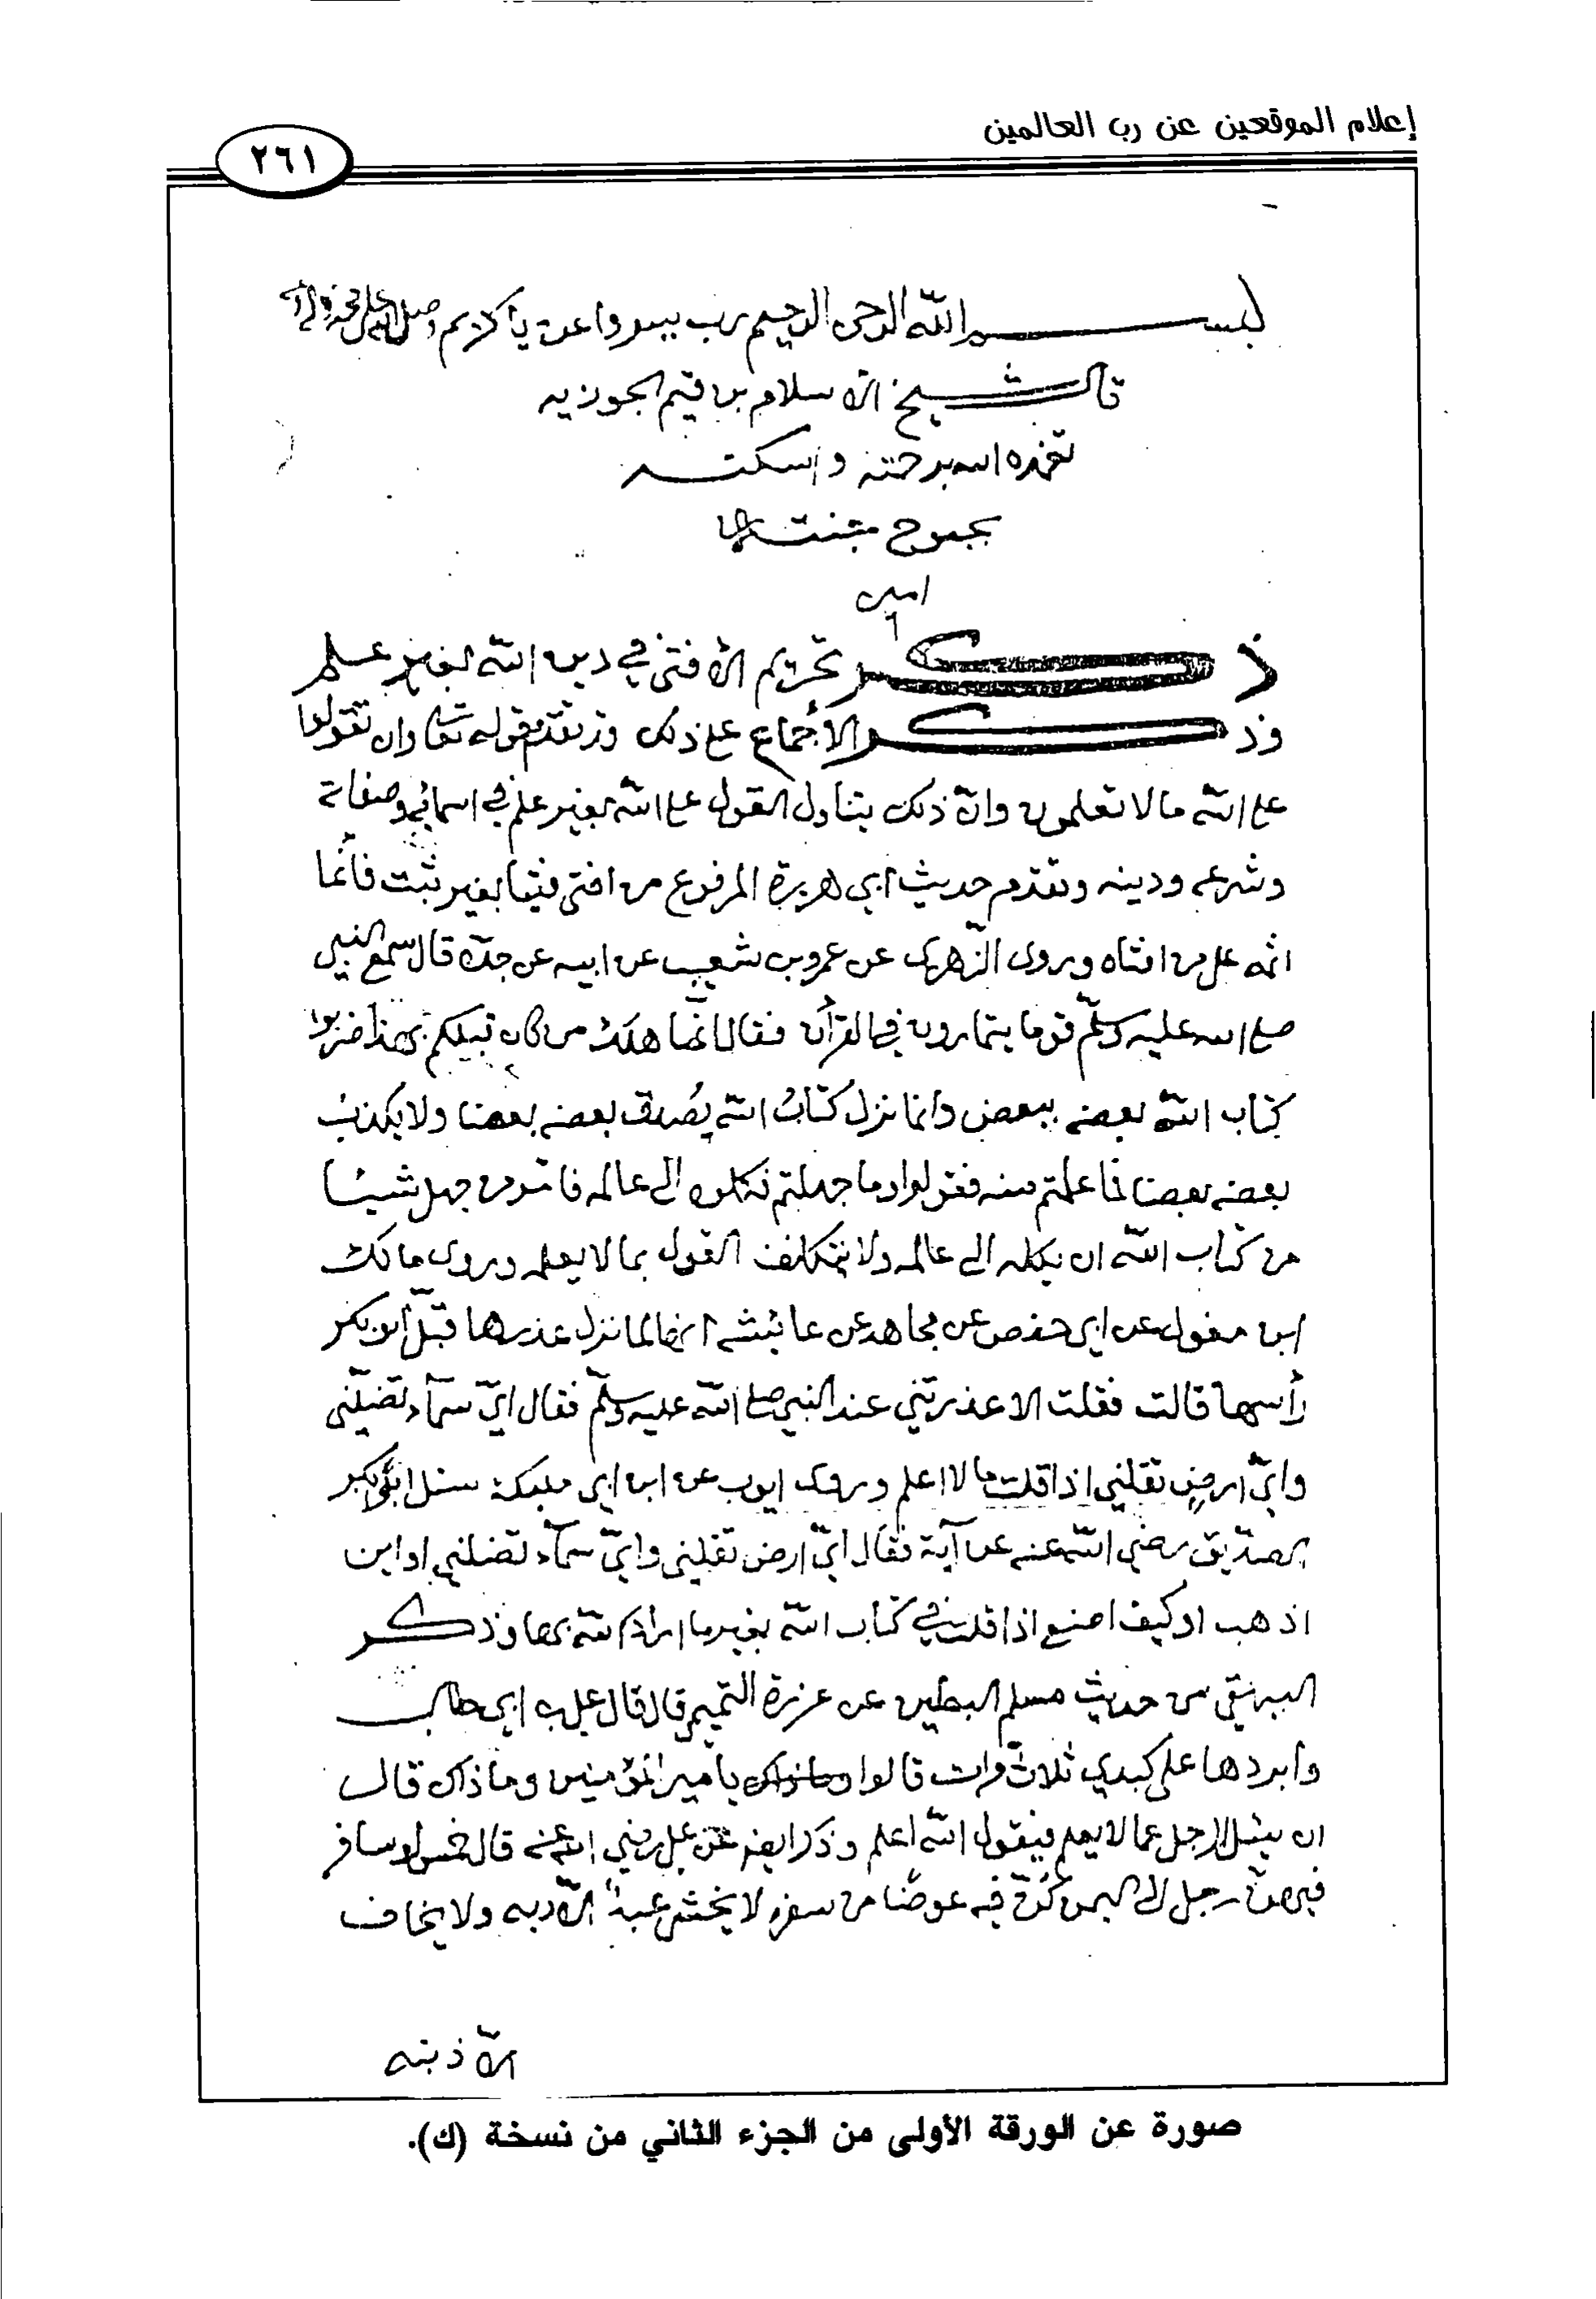 إعلام الموقعين عن رب العالمين
٢٦١
بسم الله الرحمن الرحيم رب يسر واعن يا كريم وصلى الله على محمد وآله
قال شيخ الاسلام بن قيم الجوزيه
تغمده الله برحمته واسكنه
بحبوح جنته
امين
ذكر تحريم الافتى في دين الله بغير علم
وذكر الإجماع على ذلك وقد تقدم قوله تعالى وان تقولوا
على الله ما لا تعلمون وانّ ذلك يتناول القول على الله بغير علم في اسمائه وصفاته
وشرعه ودينه وتقدم حديث ابي هريرة المرفوع من افتى فتيا بغير ثبت فأنما
اثمه على من افتاه وروى الزهري عن عمرو بن شعيب عن ابيه عن جده قال سمع النبي
صلى الله عليه وسلّم قوما يتمارون في القرآن فقال انّما هلك من كان قبلكم بهذا ضربوا
كتاب الله بعضه ببعض وانما نزل كتابُ الله يُصدق بعضه بعضا ولا يكذب
بعضه بعضا فما علمتم منه فقولوا وما جهلتم فكلوه الى عالمه فامر من جهل شيئا
من كتاب الله ان يكله الى عالمه ولا يتكلف القول بما لا يعلمه وروى مالك
ابن مغول عن ابي حفص عن مجاهد عن عائشه انها لما نزل عذرها قبّل أبو بكر
رأسها قالت فقلت الا عذرتني عند النبي صلى الله عليه وسلّم فقال ايّ سمآء تضلّني
وايّ ارضٍ تقلني اذا قلت ما لا اعلم وروى ايوب عن ابن ابي مليكة سئل ابو بكر
الصدّيق رضي الله عنه عن آية فقال ايّ ارض تقلني وايّ سمآء تضلني او اين
اذهب او كيف اصنع اذا قلت في كتاب الله بغير ما اراد الله بها وذكر
البيهقي من حديث مسلم البطين عن عزرة التميمي قال قال علي بن ابي طالب
وأبردها على كبدي ثلاث مرات قالوا يا مير المؤمنين وما ذاك قال
ان يسئل الرجل عما لا يعلم فيقول الله اعلم وذكر ايضا عن علي رضي الله عنه قال خمس لو سافر
فيهنّ رجل الى اليمن كُنّ فيه عوضًا من سفره لا يخشى عبدٌ الّا ربه ولا يخاف
الّا ذنبه
صورة عن الورقة الأولى من الجزء الثاني من نسخة (ك).